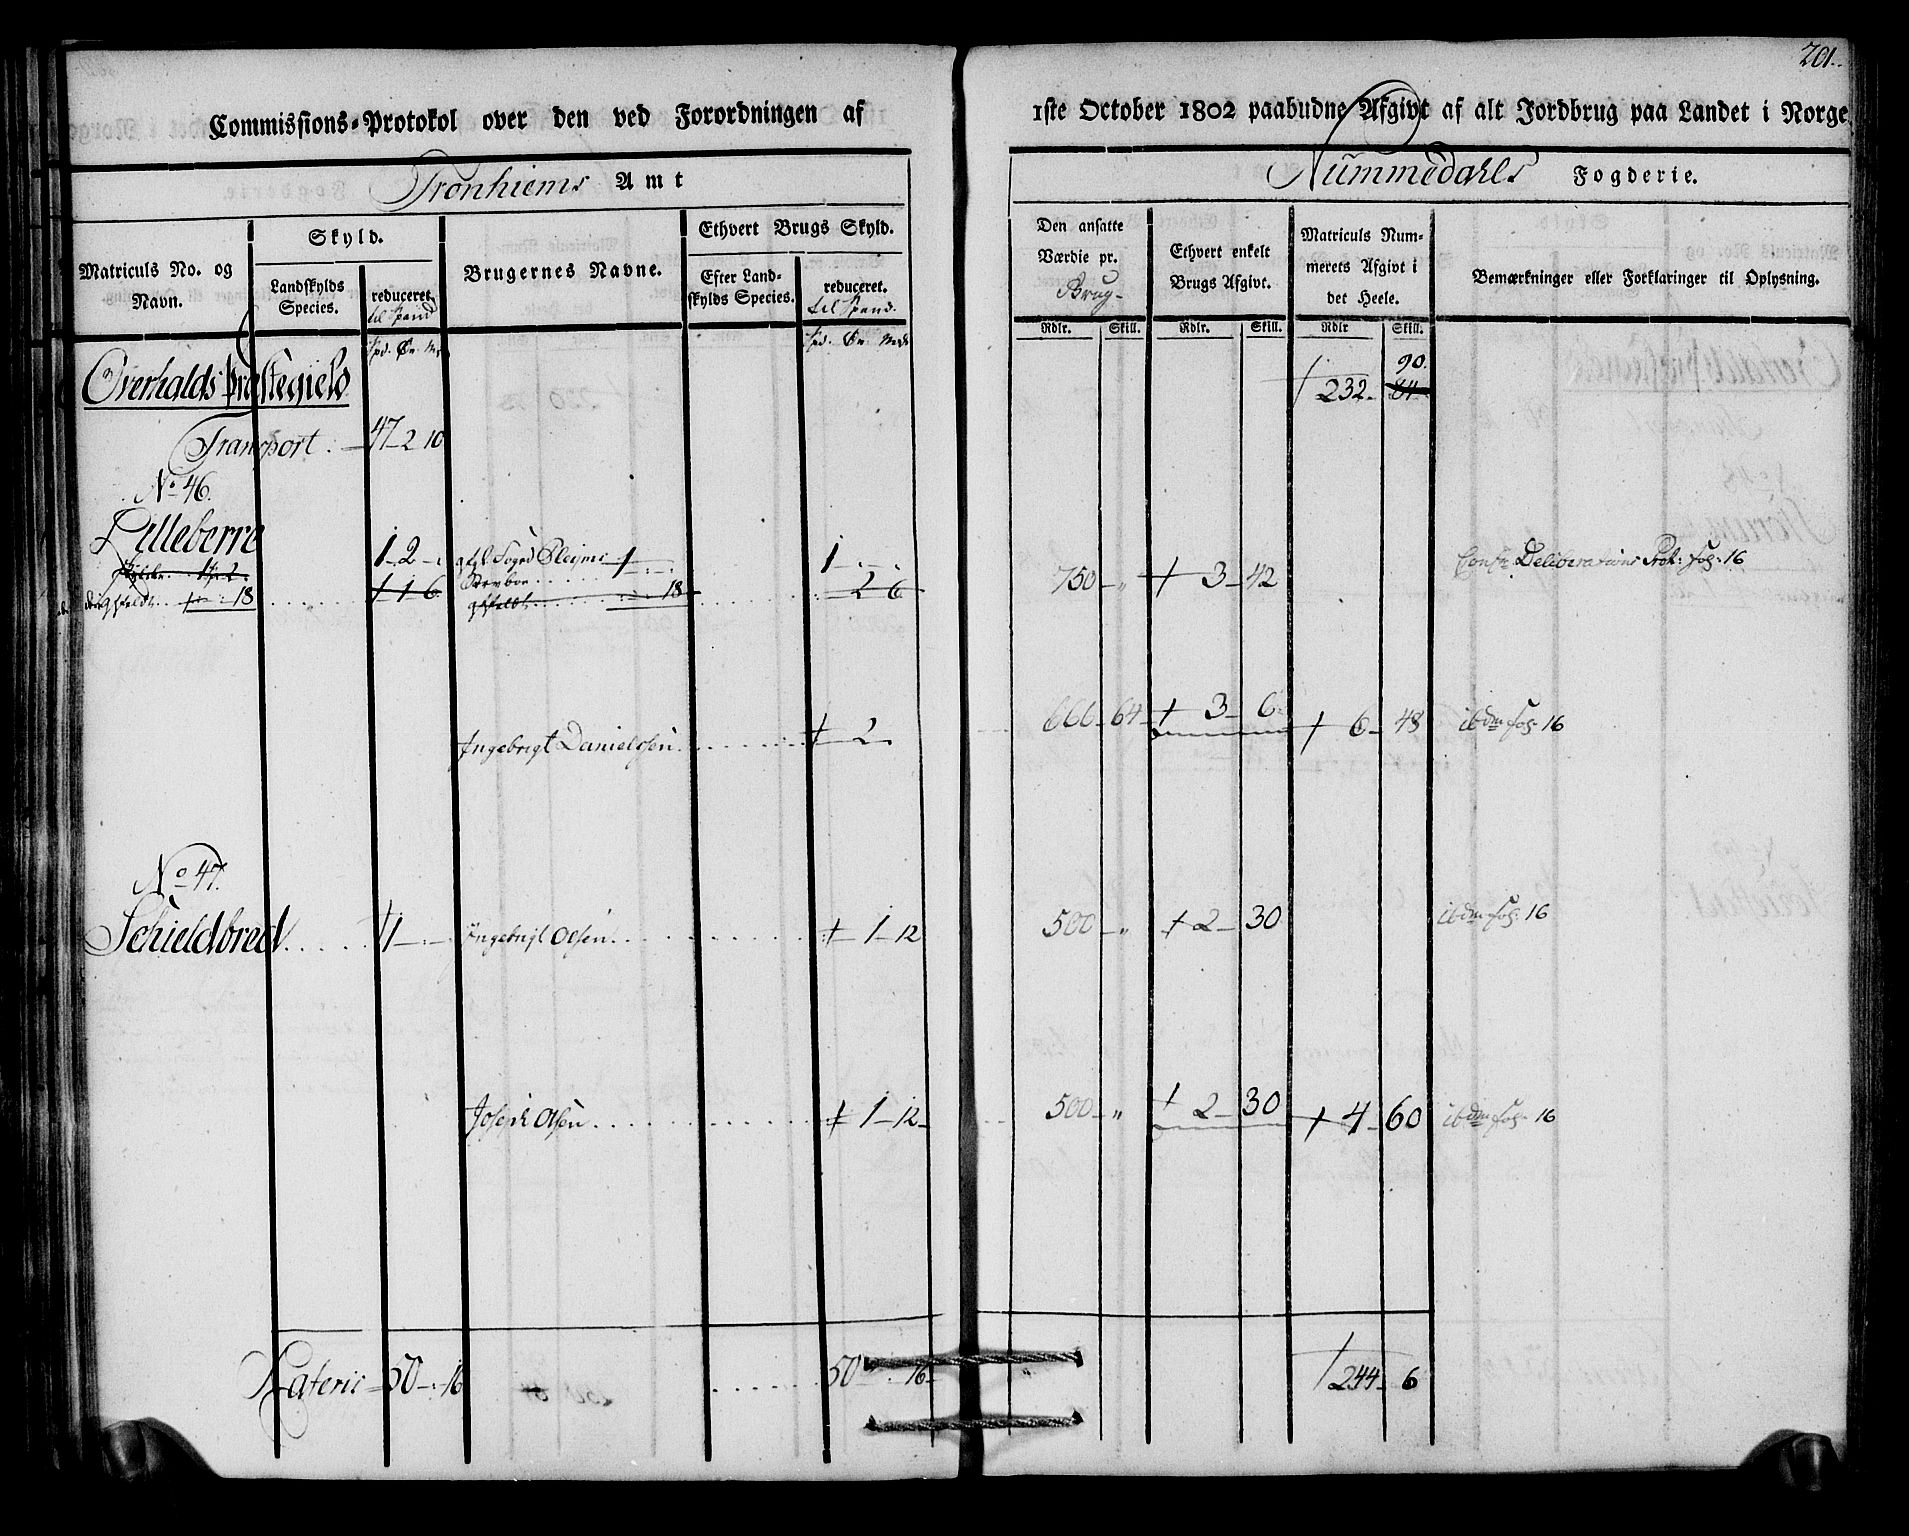 201.
Commissions-Protokol over den ved Forordningen af
1ste October 1802 paabudne Afgivt af alt Jordbrug paa Landet i Norge
Tronhiems Amt
Nummedahls Fogderie.
Matriculs No. og Navn.
Skyld.
Landskylds Species.
reduceret.
til Spand
Brugernes Navne.
Ethvert Brugs Skyld.
Efter Landskylds Species.
reduceret.
til Spand.
Den ansatte Værdie pr.
Brug
Ethvert enkelt Brugs Afgivt.
Matriculs Nummerets Afgivt i det Heele.
Bemærkninger eller Forklaringer til Oplysning.
Rdlr. Skill. Rdlr. Skill. Rdlr Skill.
Overhalds Præstegield
90.
232 84
Transport 47 2 10
No 46.
Lilleberre
1 2
1
1
18
1 1 6
18
2 6
750 " 3 42
Deliberations Prot: fol: 16
Ingebrigt Danielssen 2
666 64 3 6
6 48
ibdm fol: 16
No 47.
Schieldbred 1
Ingebrigt Olsen 1 12
500 " 2 30
ibdm fol: 16
Joseph Olsen 1 12
500 " 2 30
4 60
ibdm fol: 16
Lateris 50 16
50 16
244 6